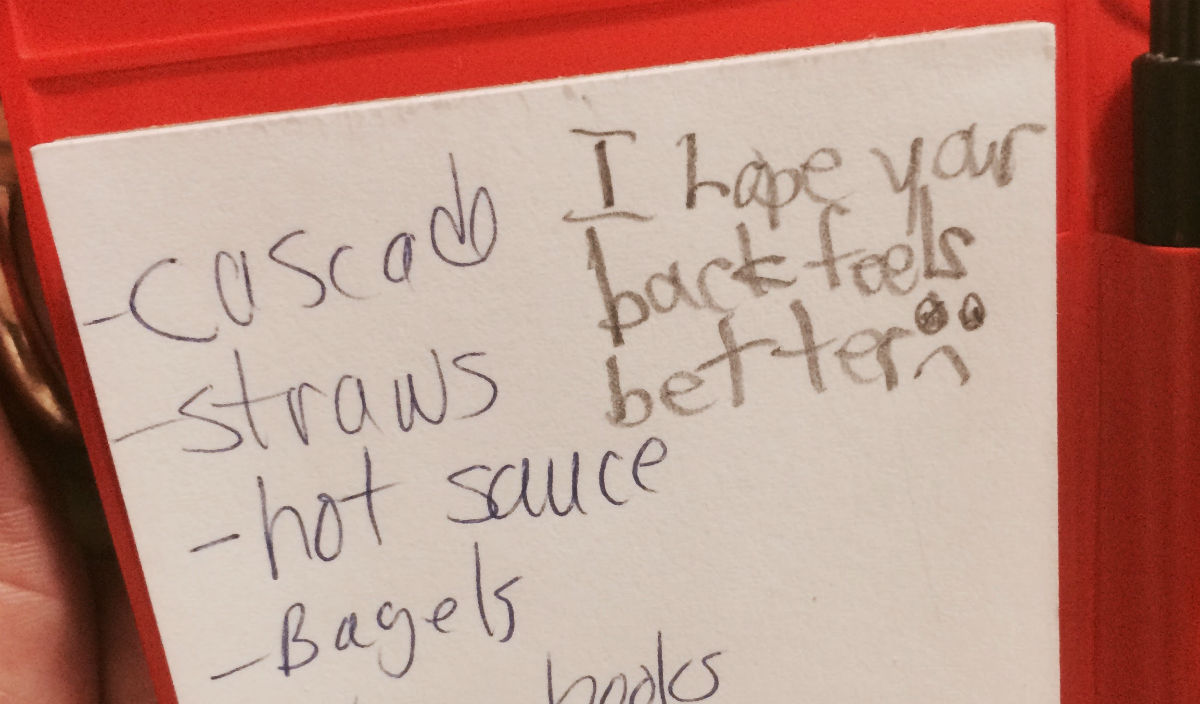 I hope your
back feels
better
- cascade
- straws
- hot sauce
- Bagels
books